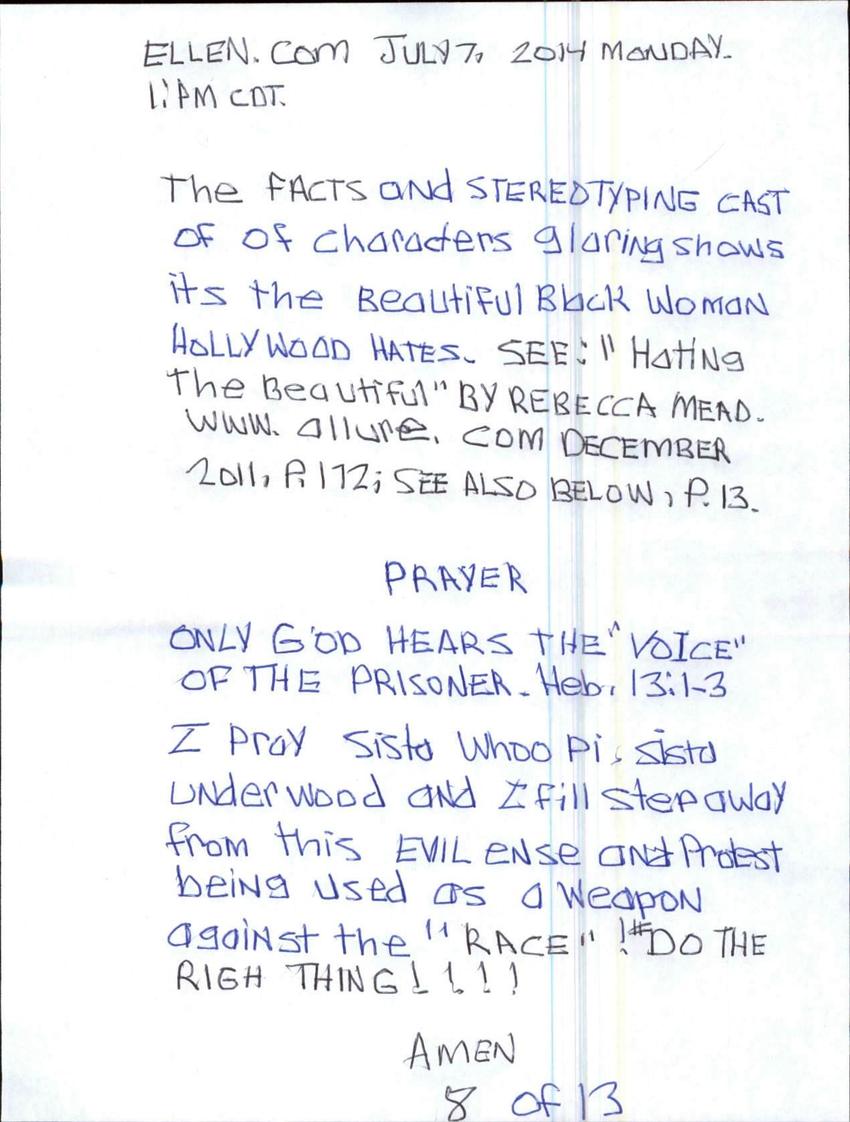 ELLEN. Com JULY 7, 2014 MONDAY.
1:PM CDT.
The FACTS and STEREOTYPING CAST
OF OF characters glaring shows
its the Beautiful Black Woman
HOLLYWOOD HATES. SEE: " Hating
The Beautiful" BY REBECCA MEAD.
WWW. allure. COM DECEMBER
2011, P. 172; SEE ALSO BELOW, P. 13.
PRAYER
ONLY GOD HEARS THE "VOICE"
OF THE PRISONER. Heb. 13:1-3
I Pray Sista Whoo Pi, sista
underwood and I fill step away
from this EVIL ENSE and Protest
being used as a Weapon
against the " RACE" !#DO THE
RIGH THING!!!!
AMEN
8 of 13